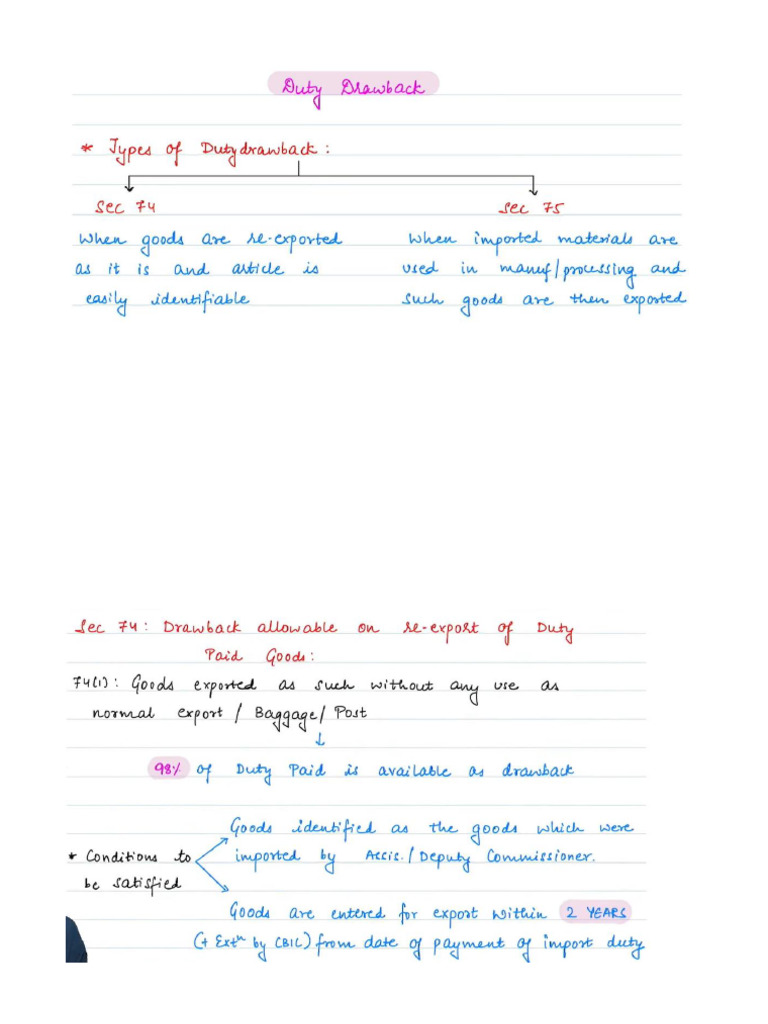 Duty Drawback
* Types of Dutydrawback :
Sec 74
Sec 75
When goods are re-exported
as it is and article is
easily identifiable
When imported materials are
used in manuf/processing and
such goods are then exported
Sec 74: Drawback allowable on re-export of Duty
Paid Goods:
74(1): Goods exported as such without any use as
normal export / Baggage/ Post
98% of Duty Paid is available as drawback
* Conditions to
be satisfied
Goods identified as the goods which were
imported by Assis./Deputy Commissioner.
Goods are entered for export within 2 YEARS
(+ Extn by CBIC) from date of payment of import duty